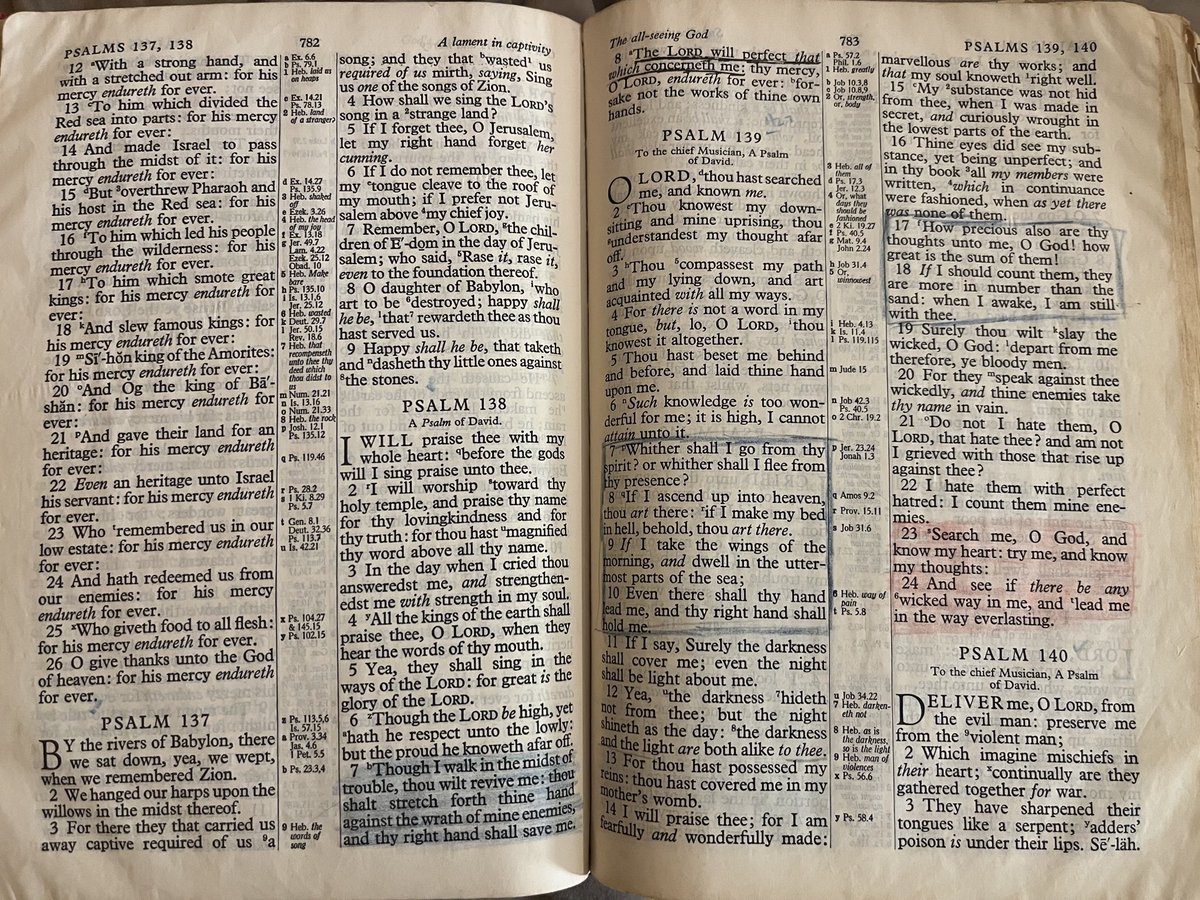 PSALMS 137, 138
782
A lament in captivity
12 ᵃWith a strong hand, and
with a stretched out arm: for his
mercy endureth for ever.
13 ᶜTo him which divided the
Red sea into parts: for his mercy
endureth for ever:
14 And made Israel to pass
through the midst of it: for his
mercy endureth for ever:
15 ᵈBut ³overthrew Pharaoh and
his host in the Red sea: for his
mercy endureth for ever.
16 ᶠTo him which led his people
through the wilderness: for his
mercy endureth for ever.
17 ʰTo him which smote great
kings: for his mercy endureth for
ever:
18 ᵏAnd slew famous kings: for
his mercy endureth for ever:
19 ᵐSī′-hŏn king of the Amorites:
for his mercy endureth for ever:
20 ᵒAnd Og the king of Bā′-
shăn: for his mercy endureth for
ever:
21 ᵖAnd gave their land for an
heritage: for his mercy endureth
for ever:
22 Even an heritage unto Israel
his servant: for his mercy endureth
for ever.
23 Who ᵗremembered us in our
low estate: for his mercy endureth
for ever:
24 And hath redeemed us from
our enemies: for his mercy
endureth for ever.
25 ˣWho giveth food to all flesh:
for his mercy endureth for ever.
26 O give thanks unto the God
of heaven: for his mercy endureth
for ever.
PSALM 137
BY the rivers of Babylon, there
we sat down, yea, we wept,
when we remembered Zion.
2 We hanged our harps upon the
willows in the midst thereof.
3 For there they that carried us
away captive required of us ⁹a
a Ex. 6.6
b Ps. 79.1
1 Heb. laid us
on heaps
c Ex. 14.21
Ps. 78.13
2 Heb. land
of a stranger?
d Ex. 14.27
Ps. 135.9
3 Heb. shaked
off
e Ezek. 3.26
4 Heb. the head
of my joy
f Ex. 13.18
g Jer. 49.7
Lam. 4.22
Ezek. 25.12
Obad. 10
5 Heb. Make
bare
h Ps. 135.10
i Is. 13.1,6
Jer. 25.12
6 Heb. wasted
k Deut. 29.7
l Jer. 50.15
Rev. 18.6
7 Heb. that
recompenseth
unto thee thy
deed which
thou didst to
us
m Num. 21.21
n Is. 13.16
o Num. 21.33
8 Heb. the rock
p Josh. 12.1
Ps. 135.12
q Ps. 119.46
r Ps. 28.2
s 1 Ki. 8.29
Ps. 5.7
t Gen. 8.1
Deut. 32.36
Ps. 113.7
u Is. 42.21
x Ps. 104.27
& 145.15
y Ps. 102.15
z Ps. 113.5,6
Is. 57.15
a Prov. 3.34
Jas. 4.6
1 Pet. 5.5
b Ps. 23.3,4
9 Heb. the
words of
song
song; and they that ᵇwasted ¹us
required of us mirth, saying, Sing
us one of the songs of Zion.
4 How shall we sing the LORD's
song in a ²strange land?
5 If I forget thee, O Jerusalem,
let my right hand forget her
cunning.
6 If I do not remember thee, let
my ᵉtongue cleave to the roof of
my mouth; if I prefer not Jeru-
salem above ⁴my chief joy.
7 Remember, O LORD, ᵍthe chil-
dren of E′-dom in the day of Jeru-
salem; who said, ⁵Rase it, rase it,
even to the foundation thereof.
8 O daughter of Babylon, ⁱwho
art to be ⁶destroyed; happy shall
he be, ˡthat ⁷rewardeth thee as thou
hast served us.
9 Happy shall he be, that taketh
and ⁿdasheth thy little ones against
⁸the stones.
PSALM 138
A Psalm of David.
I WILL praise thee with my
whole heart: ᑫbefore the gods
will I sing praise unto thee.
2 ʳI will worship ˢtoward thy
holy temple, and praise thy name
for thy lovingkindness and for
thy truth: for thou hast ᵘmagnified
thy word above all thy name.
3 In the day when I cried thou
answeredst me, and strengthen-
edst me with strength in my soul.
4 ʸAll the kings of the earth shall
praise thee, O LORD, when they
hear the words of thy mouth.
5 Yea, they shall sing in the
ways of the LORD: for great is the
glory of the LORD.
6 ᶻThough the LORD be high, yet
ᵃhath he respect unto the lowly:
but the proud he knoweth afar off.
7 ᵇThough I walk in the midst of
trouble, thou wilt revive me: thou
shalt stretch forth thine hand
against the wrath of mine enemies,
and thy right hand shall save me.
The all-seeing God
783
PSALMS 139, 140
8 ᵃThe LORD will perfect that
which concerneth me: thy mercy,
O LORD, endureth for ever: ᵇfor-
sake not the works of thine own
hands.
PSALM 139
To the chief Musician, A Psalm
of David.
O LORD, ᵈthou hast searched
me, and known me.
2 ᵉThou knowest my down-
sitting and mine uprising, thou
ᵍunderstandest my thought afar
off.
3 ʰThou ⁵compassest my path
and my lying down, and art
acquainted with all my ways.
4 For there is not a word in my
tongue, but, lo, O LORD, ⁱthou
knowest it altogether.
5 Thou hast beset me behind
and before, and laid thine hand
upon me.
6 ⁿSuch knowledge is too won-
derful for me; it is high, I cannot
attain unto it.
7 ᵖWhither shall I go from thy
spirit? or whither shall I flee from
thy presence?
8 ᑫIf I ascend up into heaven,
thou art there: ʳif I make my bed
in hell, behold, thou art there.
9 If I take the wings of the
morning, and dwell in the utter-
most parts of the sea;
10 Even there shall thy hand
lead me, and thy right hand shall
hold me.
11 If I say, Surely the darkness
shall cover me; even the night
shall be light about me.
12 Yea, ᵘthe darkness ⁷hideth
not from thee; but the night
shineth as the day: ⁸the darkness
and the light are both alike to thee.
13 For thou hast possessed my
reins: thou hast covered me in my
mother's womb.
14 I will praise thee; for I am
fearfully and wonderfully made:
a Ps. 57.2
Phil. 1.6
1 Heb. greatly
b Job 10.3,8
c Job 10.8,9
2 Or, strength,
or, body
3 Heb. all of
them
d Ps. 17.3
Jer. 12.3
4 Or, what
days they
should be
fashioned
e 2 Ki. 19.27
f Ps. 40.5
g Mat. 9.4
John 2.24
h Job 31.4
5 Or,
winnowest
i Heb. 4.13
k Is. 11.4
l Ps. 119.115
m Jude 15
n Job 42.3
Ps. 40.5
o 2 Chr. 19.2
p Jer. 23.24
Jonah 1.3
q Amos 9.2
r Prov. 15.11
s Job 31.6
6 Heb. way of
pain
t Ps. 5.8
u Job 34.22
7 Heb. darken-
eth not
8 Heb. as is
the darkness,
so is the light
9 Heb. man of
violences
x Ps. 56.6
y Ps. 58.4
marvellous are thy works; and
that my soul knoweth ¹right well.
15 ᶜMy ²substance was not hid
from thee, when I was made in
secret, and curiously wrought in
the lowest parts of the earth.
16 Thine eyes did see my sub-
stance, yet being unperfect; and
in thy book ³all my members were
written, ⁴which in continuance
were fashioned, when as yet there
was none of them.
17 ᶠHow precious also are thy
thoughts unto me, O God! how
great is the sum of them!
18 If I should count them, they
are more in number than the
sand: when I awake, I am still
with thee.
19 Surely thou wilt ᵏslay the
wicked, O God: ˡdepart from me
therefore, ye bloody men.
20 For they ᵐspeak against thee
wickedly, and thine enemies take
thy name in vain.
21 ᵒDo not I hate them, O
LORD, that hate thee? and am not
I grieved with those that rise up
against thee?
22 I hate them with perfect
hatred: I count them mine ene-
mies.
23 ˢSearch me, O God, and
know my heart: try me, and know
my thoughts:
24 And see if there be any
⁶wicked way in me, and ᵗlead me
in the way everlasting.
PSALM 140
To the chief Musician, A Psalm
of David.
DELIVER me, O LORD, from
the evil man: preserve me
from the ⁹violent man;
2 Which imagine mischiefs in
their heart; ˣcontinually are they
gathered together for war.
3 They have sharpened their
tongues like a serpent; ʸadders'
poison is under their lips. Sē′-läh.